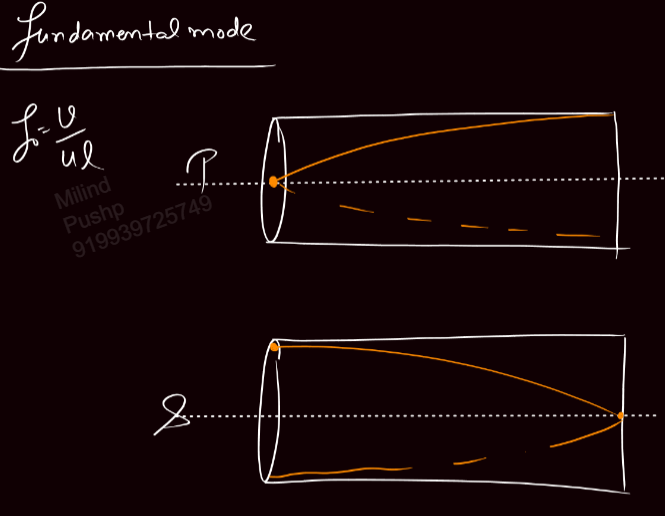 fundamental mode
f₀ = v/4l
P
Milind
Pushp
919939725749
S